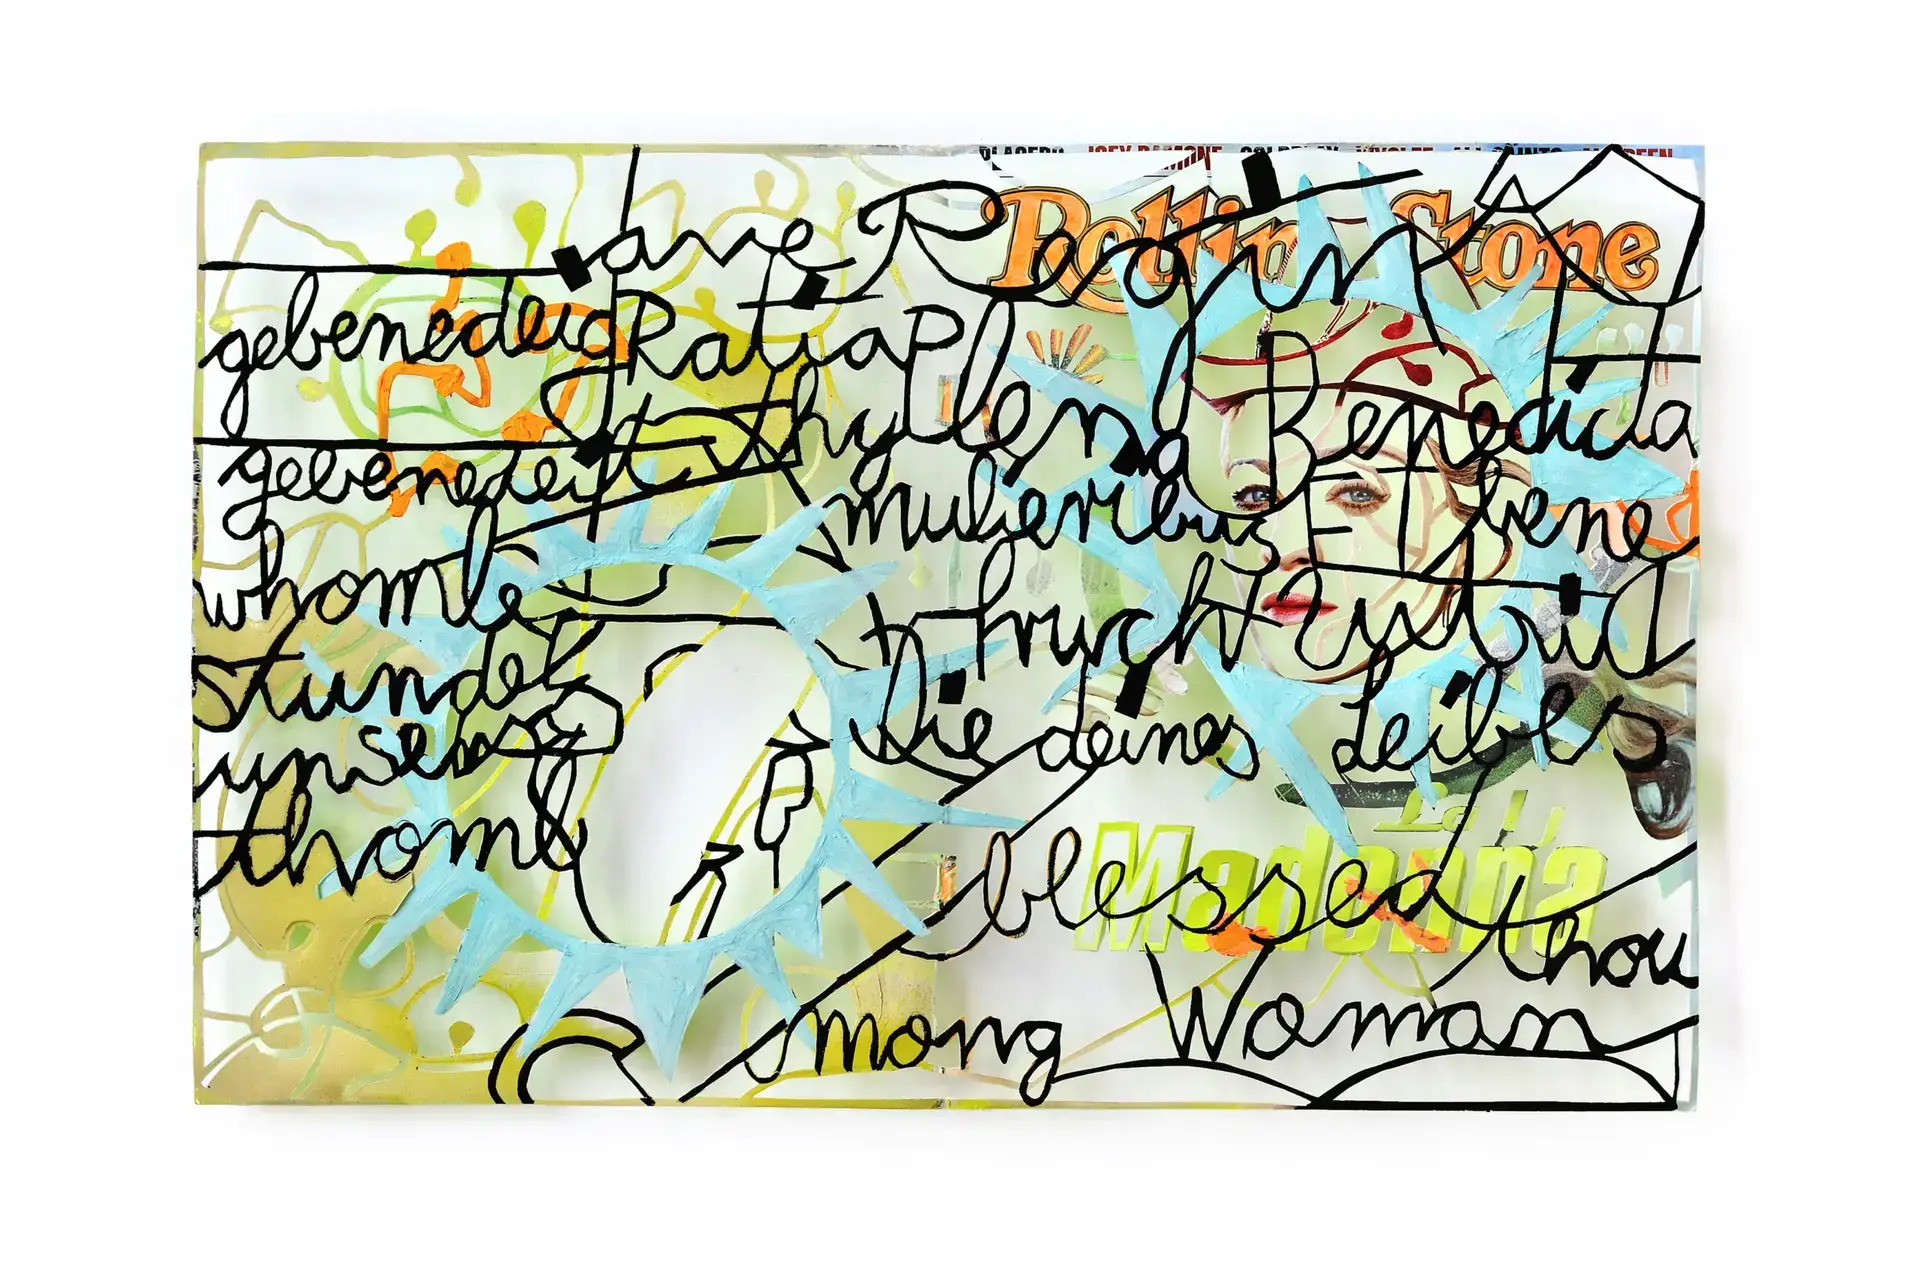 JOEY RAMONE COLDPLAY WYCLEF ALL SAINTS
Rolling Stone
ave Regina
gebenedeig Ratia Plena Benedicta
gebenedeit thy mulieribus ET bene
whomb frucht
stunde Die deines Leibes
unseres
thomb
Lady
Madonna
blessed thou
among Woman